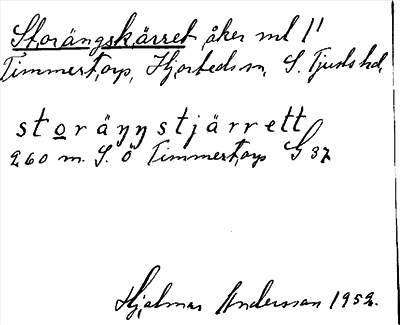 Storängskärret åker ml 1'
Timmertorp, Hjorteds sn, S. Tjusts hd.
storäŋŋstjärrett
260 m. S. Ö Timmertorp G 37
Hjalmar Andersson 1952.